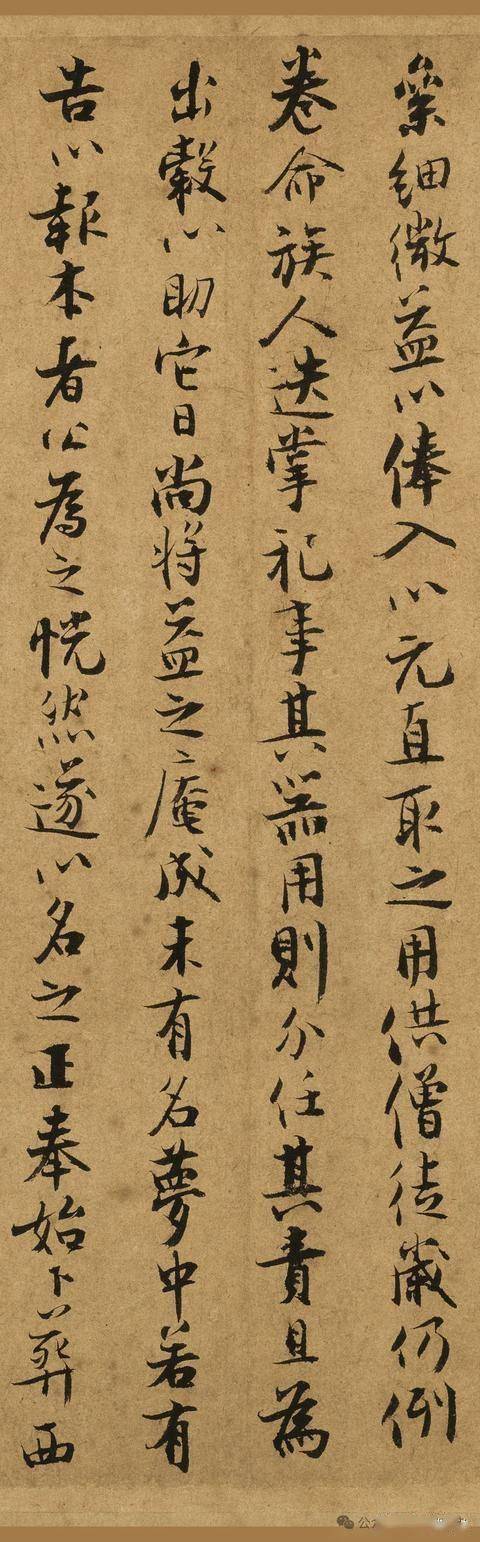 絫細微益以俸入以元直取之用供僧徒歲仍例
卷命族人迭掌祀事其器用則分任其責且為
出穀以助它日尚將益之庵成未有名夢中若有
告以報本者公為之恍然遂以名之正奉始卜葬西